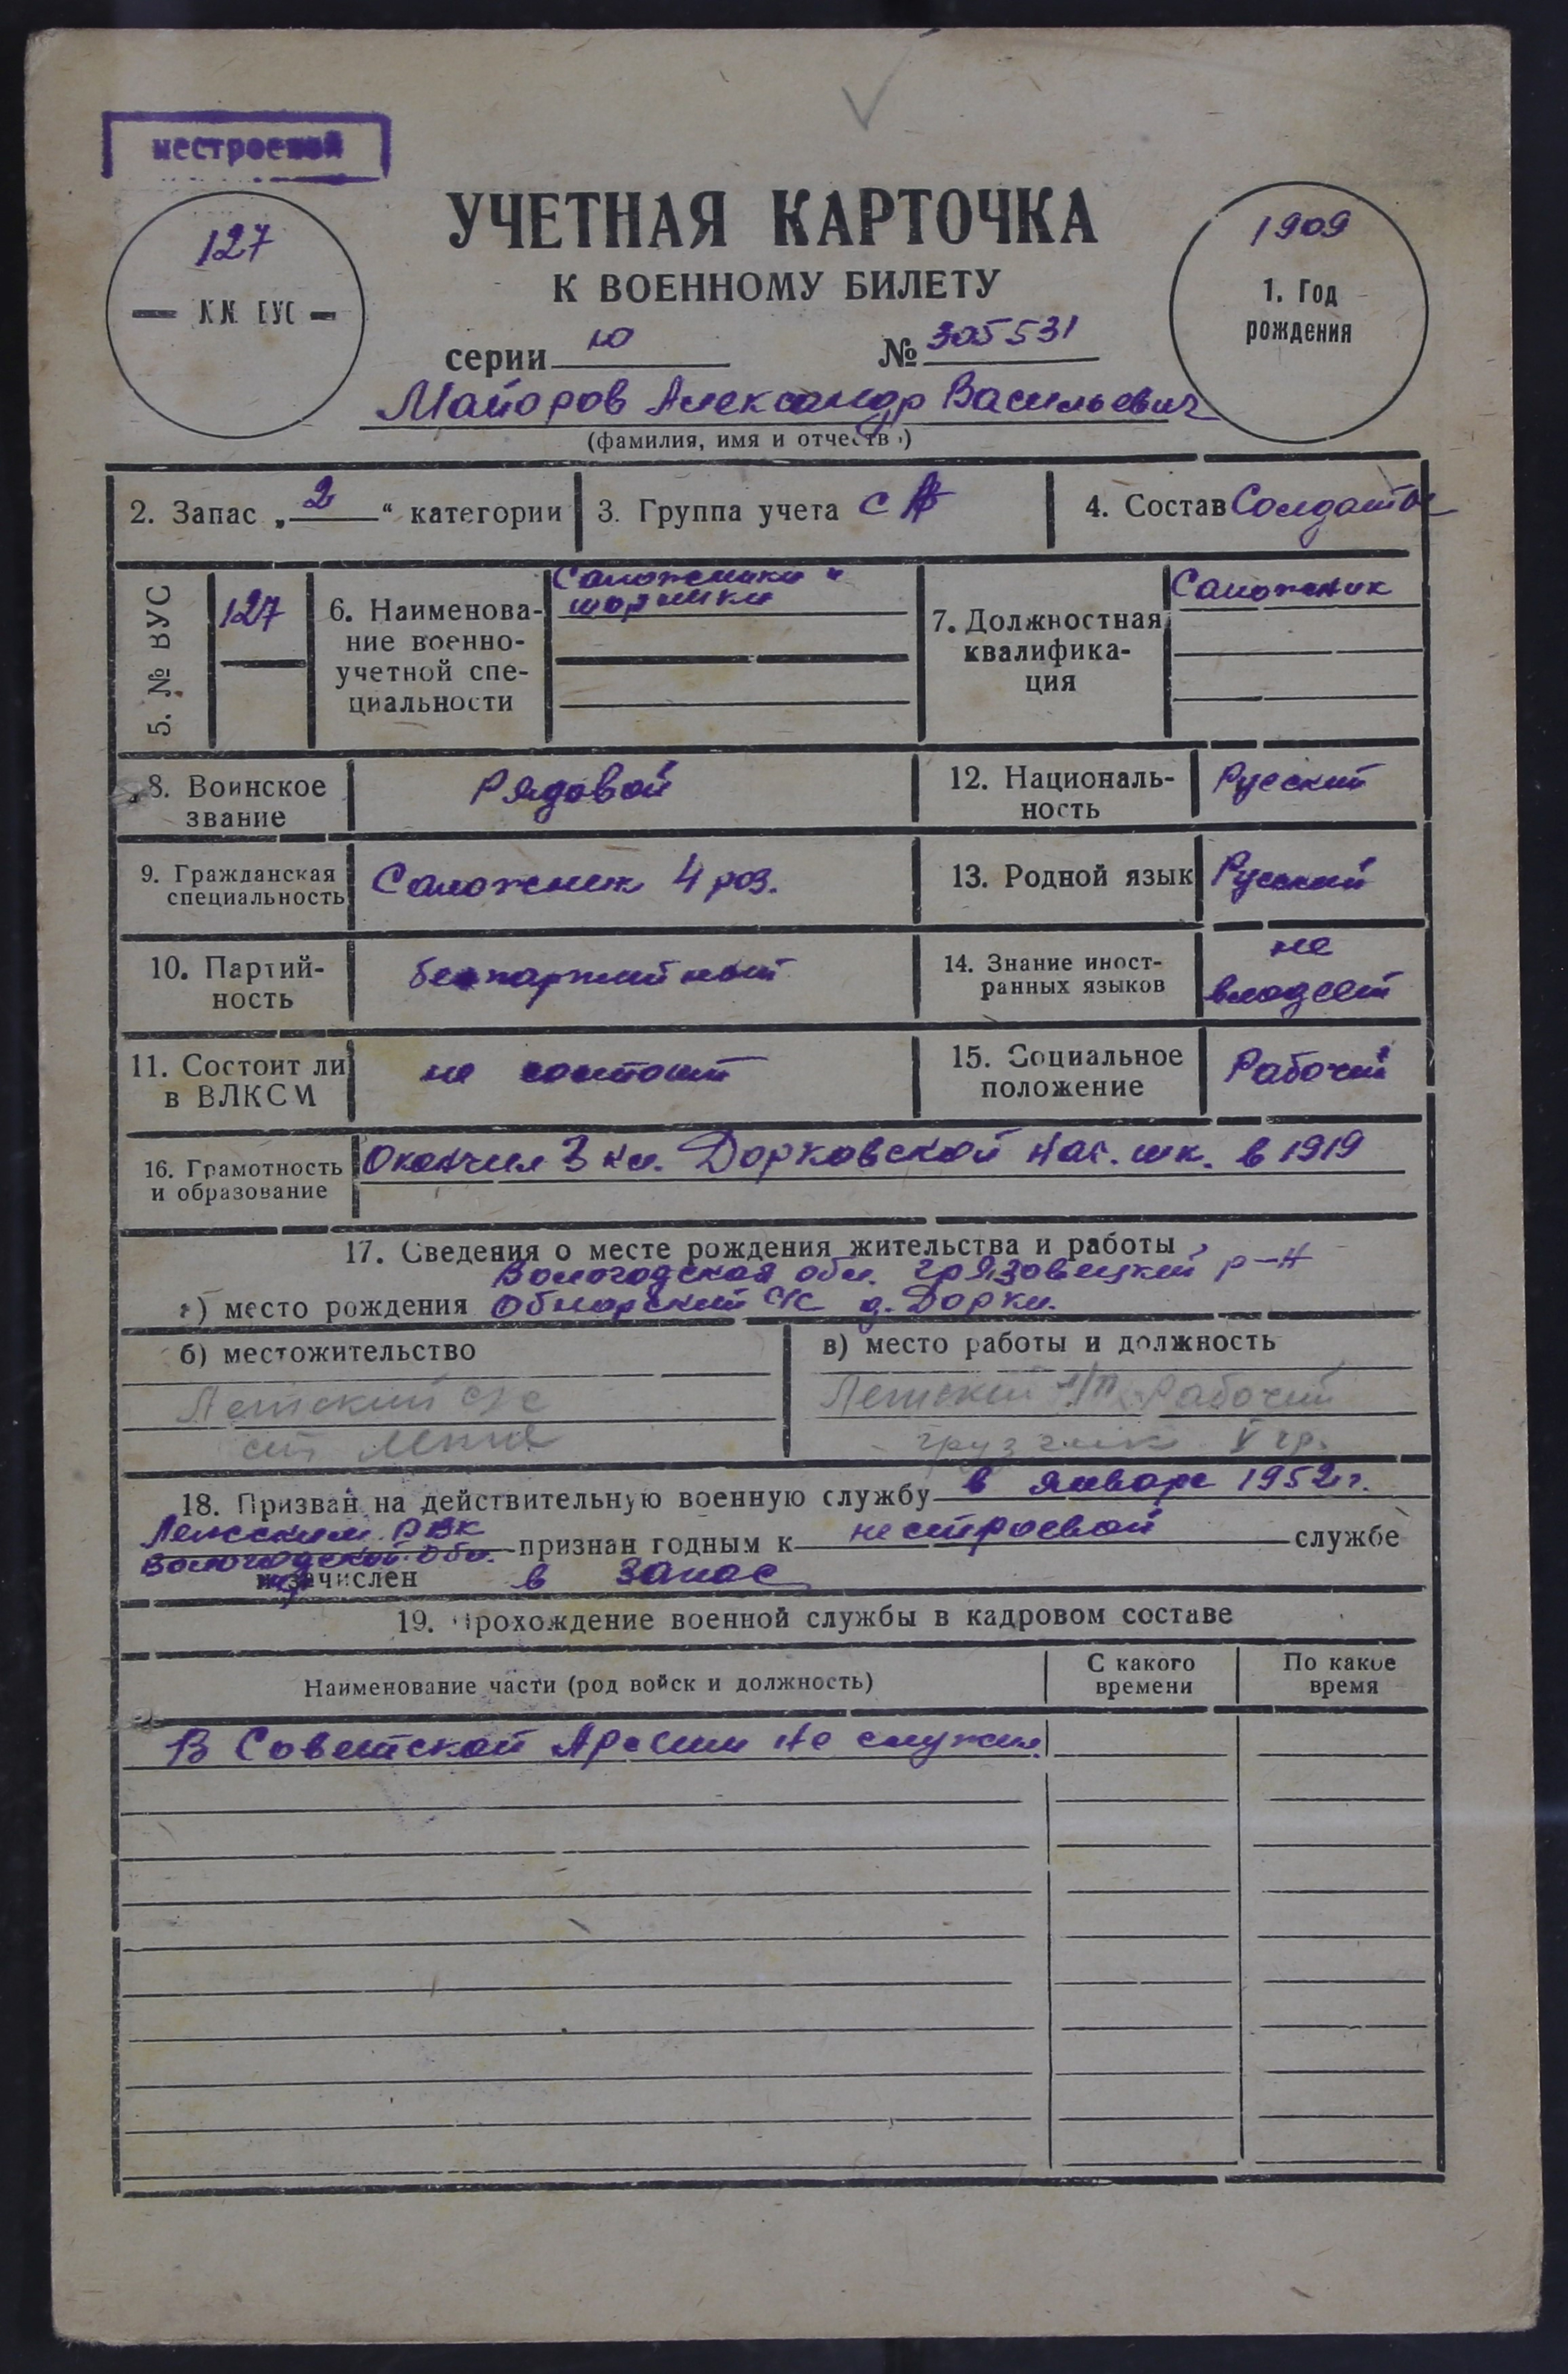 нестроевой
127
№№ ВУС
УЧЕТНАЯ КАРТОЧКА
К ВОЕННОМУ БИЛЕТУ
серии Ю № 305531
1909
1. Год
рождения
Майоров Александр Васильевич
(фамилия, имя и отчество)
2. Запас „2“ категории
3. Группа учета СА
4. Состав Солдаты
5. № ВУС
127
6. Наименова-
ние военно-
учетной спе-
циальности
Сапожники и
шорники
7. Должностная
квалифика-
ция
Сапожник
8. Воинское
звание
Рядовой
12. Националь-
ность
Русский
9. Гражданская
специальность
Сапожник 4 роз.
13. Родной язык
Русский
10. Партий-
ность
беспартийный
14. Знание иност-
ранных языков
не
владеет
11. Состоит ли
в ВЛКСМ
не состоит
15. Социальное
положение
Рабочий
16. Грамотность
и образование
Окончил 3 кл. Дорковской нач. шк. в 1919
17. Сведения о месте рождения жительства и работы
Вологодская обл. Грязовецкий р-н
а) место рождения Обнорский с/с д. Дорки.
б) местожительство
Летский с/с
ст
в) место работы и должность
Летский л/п Рабочий
грузчик V гр.
18. Призван на действительную военную службу в январе 1952 г.
Лежским РВК
Вологодской обл. признан годным к нестроевой службе
и зачислен в запас
19. Прохождение военной службы в кадровом составе
Наименование части (род войск и должность)
С какого
времени
По какое
время
В Советской Армии не служил.